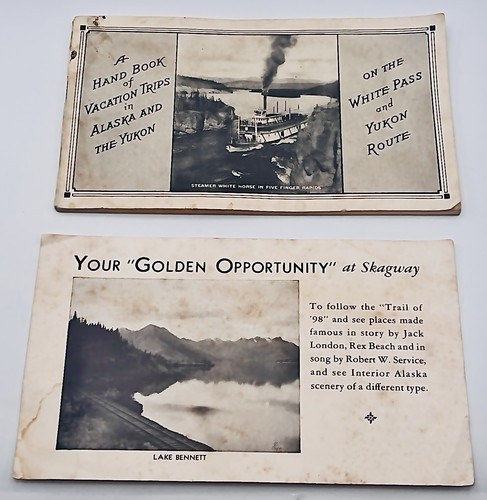 A
HAND BOOK
of
VACATION TRIPS
in
ALASKA AND
THE YUKON
STEAMER WHITE HORSE IN FIVE FINGER RAPIDS
ON THE
WHITE PASS
and
YUKON
ROUTE
YOUR "GOLDEN OPPORTUNITY" at Skagway
LAKE BENNETT
To follow the "Trail of
'98" and see places made
famous in story by Jack
London, Rex Beach and in
song by Robert W. Service,
and see Interior Alaska
scenery of a different type.